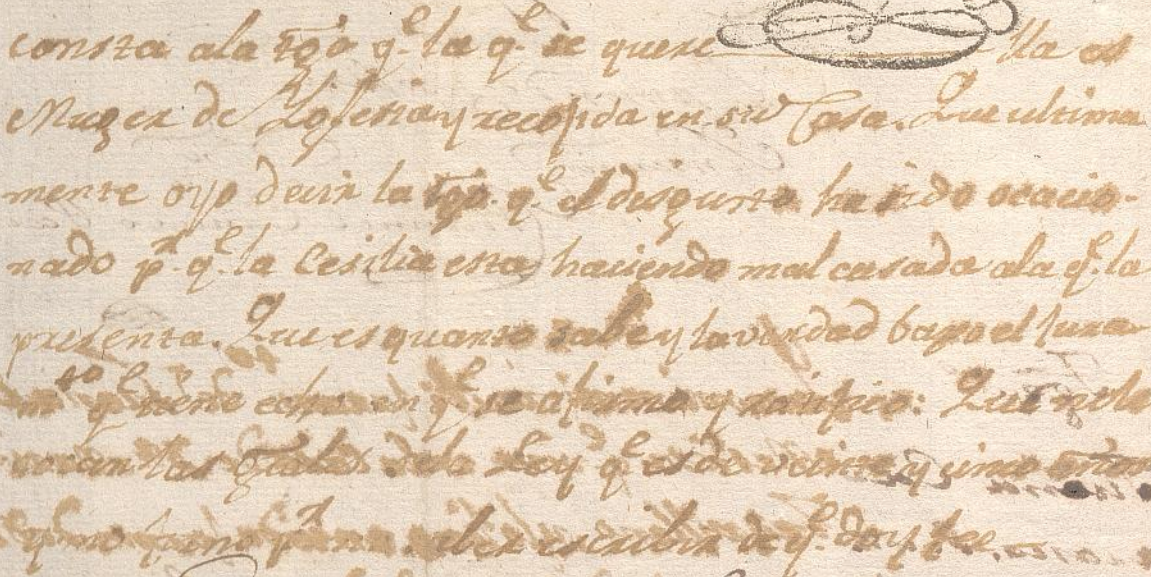 consta ala tgo q.e la q.e se quere lla es
Muger de Yglesia y recojida en su Casa. Que ultima
mente oyo decir la tgo. q.e el disgusto ha sido ocacio-
nado p.r q.e la Cesilia esta haciendo mal casada ala q.e la
presenta. Que es quanto sabe y la verdad bajo el jura
m.to q.e tiene echo en q.e se afirmo y ratifico: Que no le
tocan las Grales dela Ley q.e es de veinte y cinco
y no firmó p.r no saber escribir de q.e doy fee